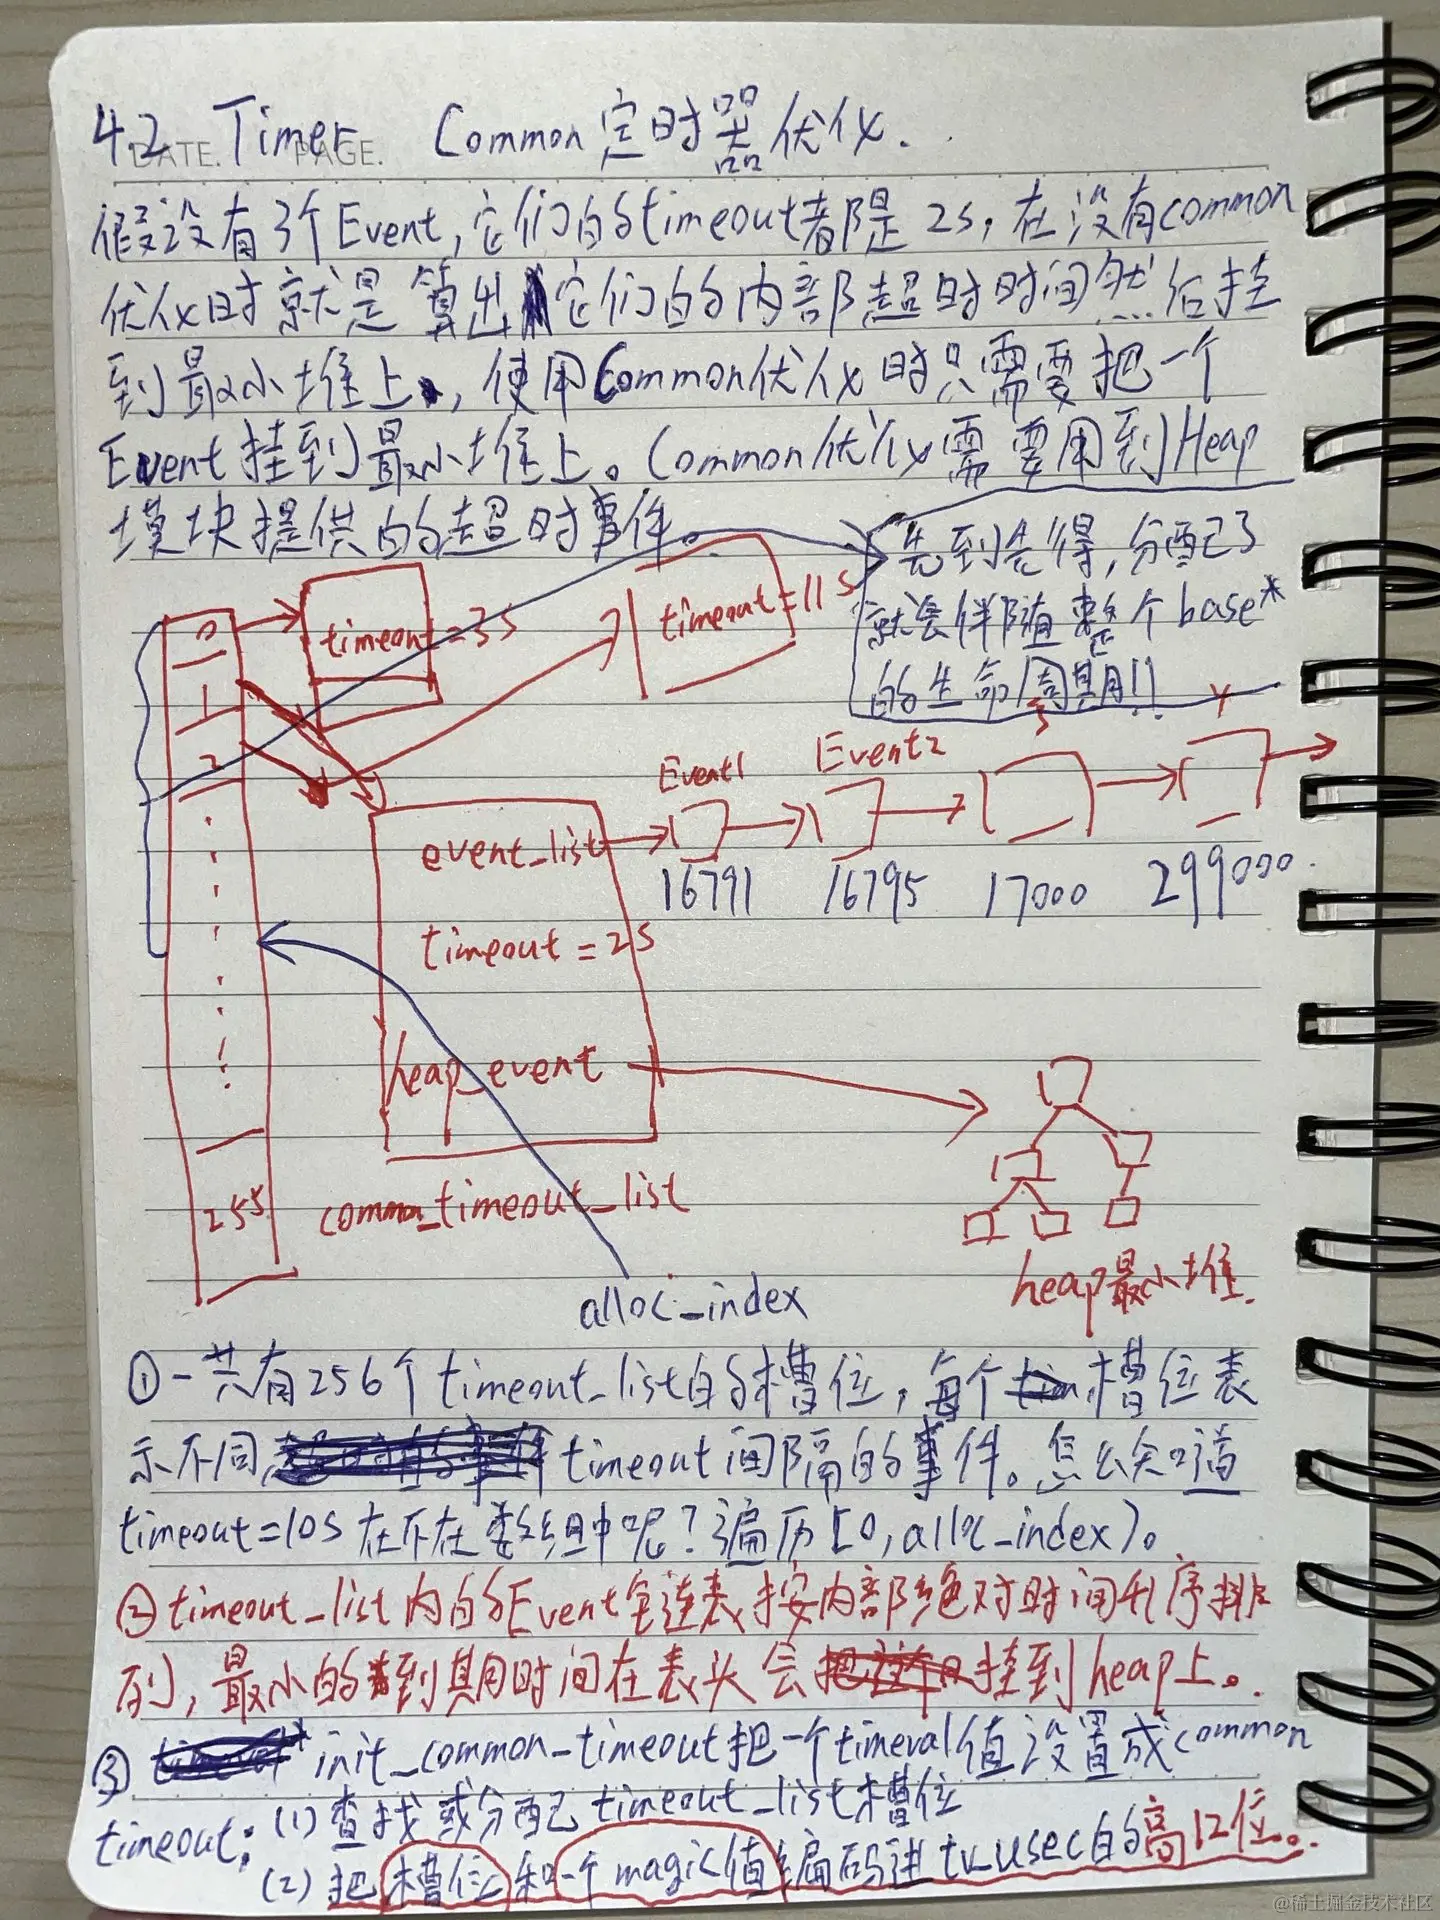 4.2 Timer Common定时器优化.
DATE. PAGE.
假设有3个Event,它们的timeout都是2s,在没有common
优化时就是算出它们的内部超时时间然后挂
到最小堆上,使用Common优化时只需要把一个
Event挂到最小堆上。Common优化需要用到Heap
模块提供的超时事件。
先到先得,分配了
就会伴随整个base*
的生命周期!!
0
timeout=3s
timeout=11s
1
2
Event1
Event2
3
4
event_list
16791
16795
17000
299000
timeout=2s
heap_event
255
common_timeout_list
heap最小堆.
alloc_index
①一共有256个timeout_list的槽位,每个槽位表
示不同timeout间隔的事件。怎么知道
timeout=10s在不在数组中呢?遍历[0,alloc_index)。
②timeout_list内的Event链表按内部绝对时间升序排
列,最小的到期时间在表头会挂到heap上。
③init_common_timeout把一个timeval值设置成common
timeout:(1)查找或分配timeout_list槽位
(2)把槽位和一个magic值编码进tv_usec的高12位。
@稀土掘金技术社区